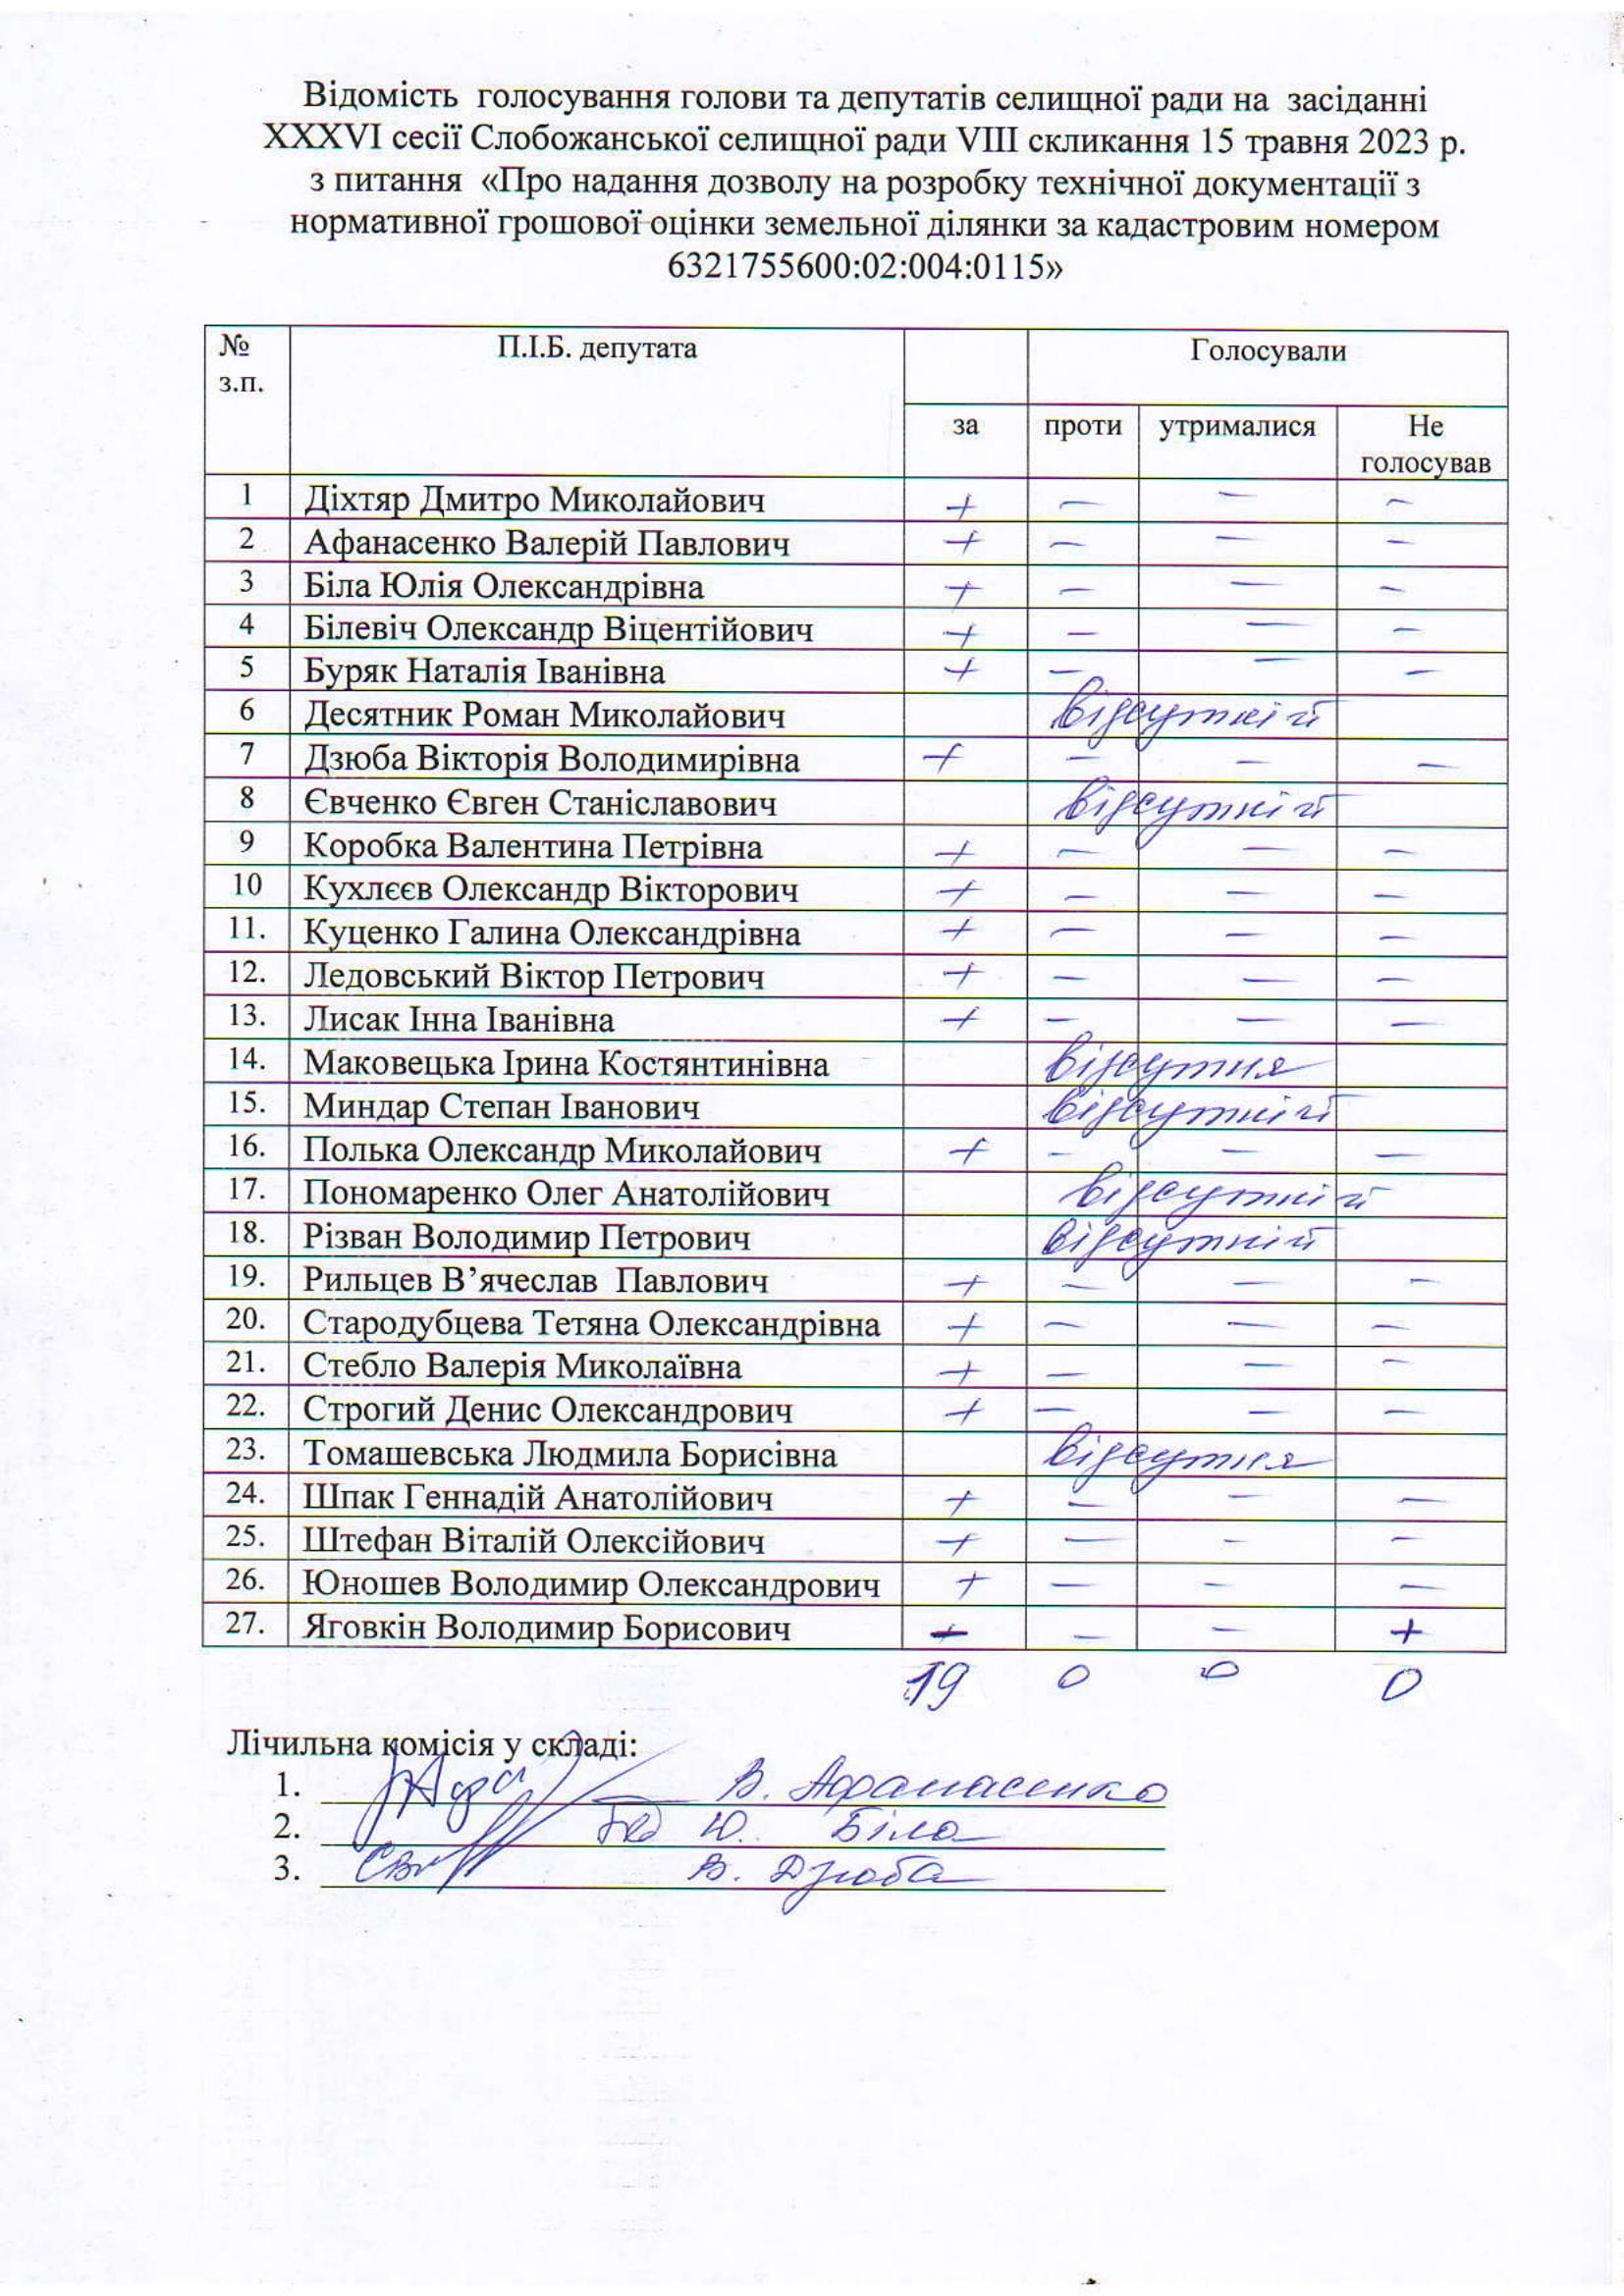 Відомість голосування голови та депутатів селищної ради на засіданні
XXXVI сесії Слобожанської селищної ради VIII скликання 15 травня 2023 р.
з питання «Про надання дозволу на розробку технічної документації з
нормативної грошової оцінки земельної ділянки за кадастровим номером
6321755600:02:004:0115»
№ з.п. П.І.Б. депутата Голосували
за проти утрималися Не голосував
1 Діхтяр Дмитро Миколайович + — — —
2 Афанасенко Валерій Павлович + — — —
3 Біла Юлія Олександрівна + — — —
4 Білевіч Олександр Віцентійович + — — —
5 Буряк Наталія Іванівна + — — —
6 Десятник Роман Миколайович відсутній
7 Дзюба Вікторія Володимирівна + — — —
8 Євченко Євген Станіславович відсутній
9 Коробка Валентина Петрівна + — — —
10 Кухлєєв Олександр Вікторович + — — —
11. Куценко Галина Олександрівна + — — —
12. Ледовський Віктор Петрович + — — —
13. Лисак Інна Іванівна + — — —
14. Маковецька Ірина Костянтинівна відсутня
15. Миндар Степан Іванович відсутній
16. Полька Олександр Миколайович + — — —
17. Пономаренко Олег Анатолійович відсутній
18. Різван Володимир Петрович відсутній
19. Рильцев В’ячеслав Павлович + — — —
20. Стародубцева Тетяна Олександрівна + — — —
21. Стебло Валерія Миколаївна + — — —
22. Строгий Денис Олександрович + — — —
23. Томашевська Людмила Борисівна відсутня
24. Шпак Геннадій Анатолійович + — — —
25. Штефан Віталій Олексійович + — — —
26. Юношев Володимир Олександрович + — — —
27. Яговкін Володимир Борисович — — — +
19 0 0 0
Лічильна комісія у складі:
1. В. Афанасенко
2. Ю. Біла
3. В. Дзюба